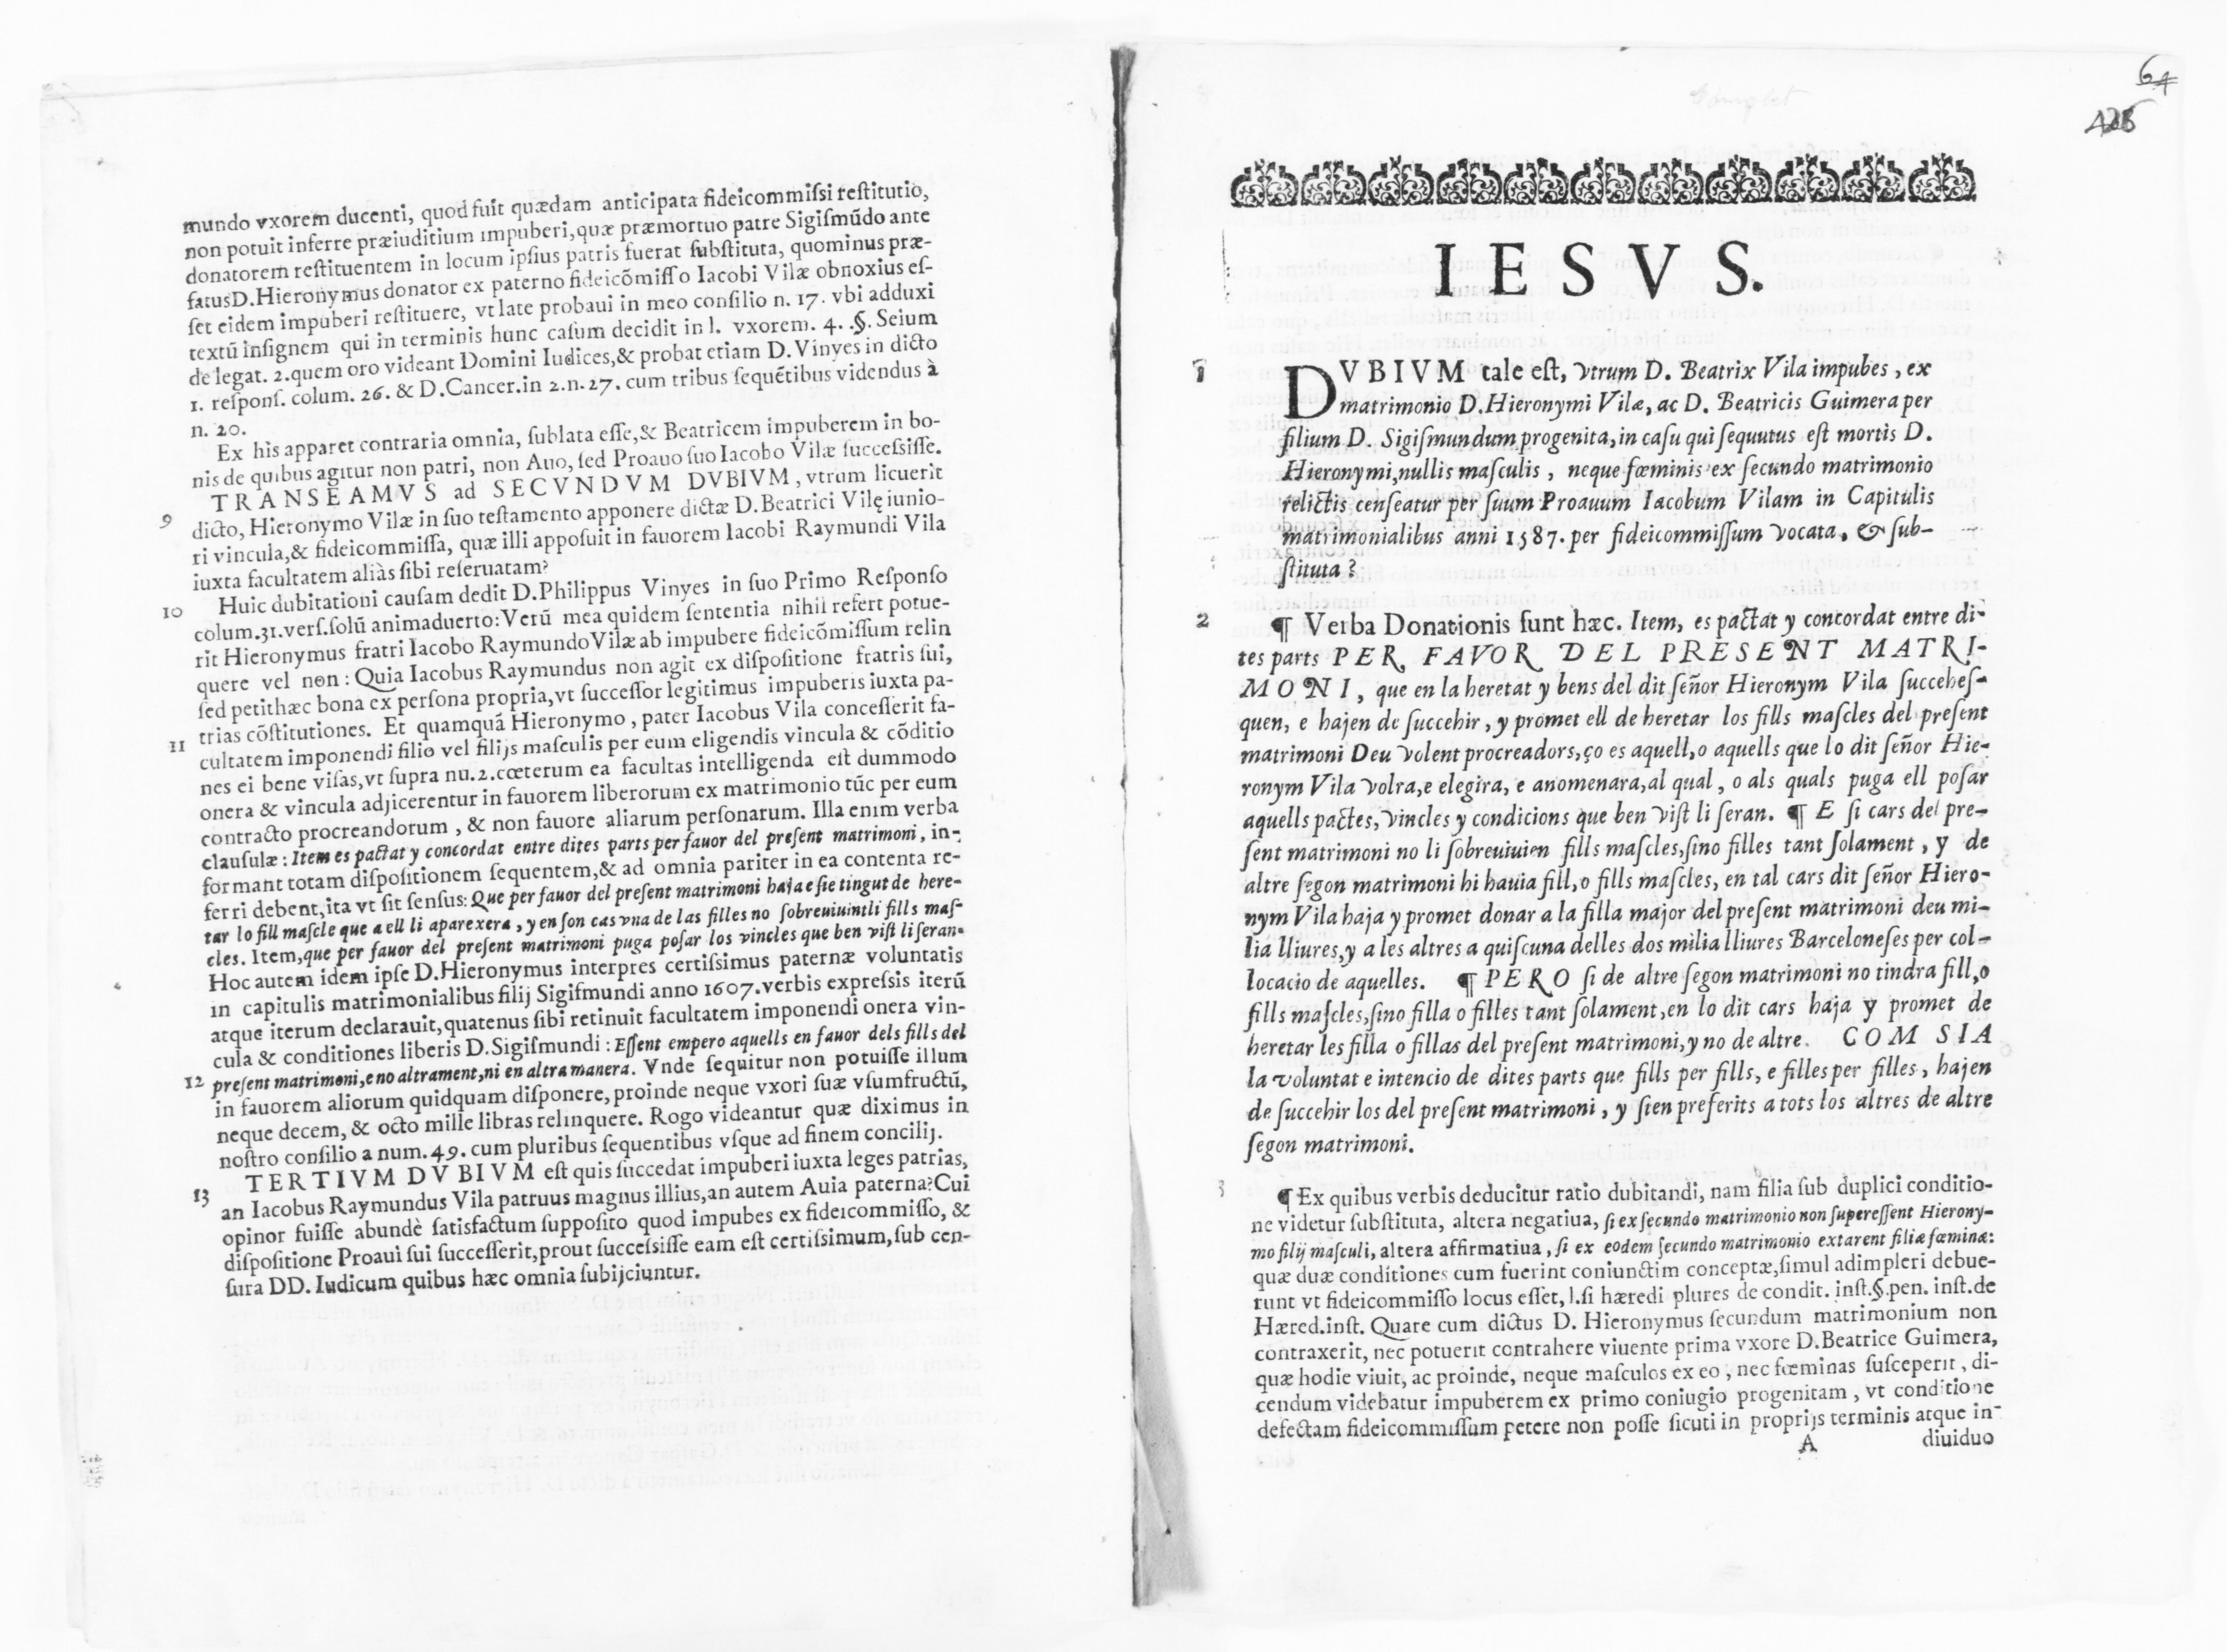 mundo vxorem ducenti, quod fuit quædam anticipata fideicommiſsi reſtitutio,
non potuit inferre præiuditium impuberi, quæ præmortuo patre Sigiſmũdo ante
donatorem reſtituentem in locum ipſius patris fuerat ſubſtituta, quominus præ-
fatus D. Hieronymus donator ex paterno fideicõmiſſo Iacobi Vilæ obnoxius eſ-
ſet eidem impuberi reſtituere, vt late probaui in meo conſilio n. 17. vbi adduxi
textũ inſignem qui in terminis hunc caſum decidit in l. vxorem. 4. .§. Seium
de legat. 2. quem oro videant Domini Iudices, & probat etiam D. Vinyes in dicto
1. reſponſ. colum. 26. & D. Cancer. in 2. n. 27. cum tribus ſequẽtibus videndus à
n. 20.
Ex his apparet contraria omnia, ſublata eſſe, & Beatricem impuberem in bo-
nis de quibus agitur non patri, non Auo, ſed Proauo ſuo Iacobo Vilæ ſucceſsiſſe.
9 TRANSEAMVS ad SECVNDVM DVBIVM, vtrum licuerit
dicto, Hieronymo Vilæ in ſuo teſtamento apponere dictæ D. Beatrici Vilę iunio-
ri vincula, & fideicommiſſa, quæ illi appoſuit in fauorem Iacobi Raymundi Vila
iuxta facultatem aliàs ſibi reſeruatam?
10 Huic dubitationi cauſam dedit D. Philippus Vinyes in ſuo Primo Reſponſo
colum. 31. verſ. ſolũ animaduerto: Verũ mea quidem ſententia nihil refert potue-
rit Hieronymus fratri Iacobo Raymundo Vilæ ab impubere fideicõmiſſum relin
quere vel non: Quia Iacobus Raymundus non agit ex diſpoſitione fratris ſui,
ſed petit hæc bona ex perſona propria, vt ſucceſſor legitimus impuberis iuxta pa-
trias cõſtitutiones. Et quamquã Hieronymo, pater Iacobus Vila conceſſerit fa-
11 cultatem imponendi filio vel filijs maſculis per eum eligendis vincula & cõditio
nes ei bene viſas, vt ſupra nu. 2. cœterum ea facultas intelligenda eſt dummodo
onera & vincula adjicerentur in fauorem liberorum ex matrimonio tũc per eum
contracto procreandorum, & non fauore aliarum perſonarum. Illa enim verba
clauſulæ: Item es pactat y concordat entre dites parts per fauor del preſent matrimoni, in-
formant totam diſpoſitionem ſequentem, & ad omnia pariter in ea contenta re-
ferri debent, ita vt ſit ſenſus: Que per fauor del preſent matrimoni haja e ſie tingut de here-
tar lo fill maſcle que a ell li aparexera, y en ſon cas vna de las filles no ſobreuiuintli fills maſ-
cles. Item, que per fauor del preſent matrimoni puga poſar los vincles que ben viſt li ſeran.
Hoc autem idem ipſe D. Hieronymus interpres certiſsimus paternæ voluntatis
in capitulis matrimonialibus filij Sigiſmundi anno 1607. verbis expreſsis iterũ
atque iterum declarauit, quatenus ſibi retinuit facultatem imponendi onera vin-
cula & conditiones liberis D. Sigiſmundi: Eſſent empero aquells en fauor dels fills del
12 preſent matrimoni, e no altrament, ni en altra manera. Vnde ſequitur non potuiſſe illum
in fauorem aliorum quidquam diſponere, proinde neque vxori ſuæ vſumfructũ,
neque decem, & octo mille libras relinquere. Rogo videantur quæ diximus in
noſtro conſilio a num. 49. cum pluribus ſequentibus vſque ad finem concilij.
TERTIVM DVBIVM eſt quis ſuccedat impuberi iuxta leges patrias,
13 an Iacobus Raymundus Vila patruus magnus illius, an autem Auia paterna? Cui
opinor fuiſſe abundè ſatisfactum ſuppoſito quod impubes ex fideicommiſſo, &
diſpoſitione Proaui ſui ſucceſſerit, prout ſucceſsiſſe eam eſt certiſsimum, ſub cen-
ſura DD. Iudicum quibus hæc omnia ſubijciuntur.
64
IESVS.
1 DVBIVM tale eſt, vtrum D. Beatrix Vila impubes, ex
matrimonio D. Hieronymi Vilæ, ac D. Beatricis Guimera per
filium D. Sigiſmundum progenita, in caſu qui ſequutus eſt mortis D.
Hieronymi, nullis maſculis, neque fœminis ex ſecundo matrimonio
relictis cenſeatur per ſuum Proauum Iacobum Vilam in Capitulis
matrimonialibus anni 1587. per fideicommiſſum vocata, & ſub-
ſtituta?
2 ¶ Verba Donationis ſunt hæc. Item, es pactat y concordat entre di-
tes parts PER FAVOR DEL PRESENT MATRI-
MONI, que en la heretat y bens del dit ſeñor Hieronym Vila ſucceheſ-
quen, e hajen de ſuccehir, y promet ell de heretar los fills maſcles del preſent
matrimoni Deu volent procreadors, ço es aquell, o aquells que lo dit ſeñor Hie-
ronym Vila volra, e elegira, e anomenara, al qual, o als quals puga ell poſar
aquells pactes, vincles y condicions que ben viſt li ſeran. ¶ E ſi cars del pre-
ſent matrimoni no li ſobreuiuien fills maſcles, ſino filles tant ſolament, y de
altre ſegon matrimoni hi hauia fill, o fills maſcles, en tal cars dit ſeñor Hiero-
nym Vila haja y promet donar a la filla major del preſent matrimoni deu mi-
lia lliures, y a les altres a quiſcuna delles dos milia lliures Barceloneſes per col-
locacio de aquelles. ¶ PERO ſi de altre ſegon matrimoni no tindra fill, o
fills maſcles, ſino filla o filles tant ſolament, en lo dit cars haja y promet de
heretar les filla o fillas del preſent matrimoni, y no de altre. COM SIA
la voluntat e intencio de dites parts que fills per fills, e filles per filles, hajen
de ſuccehir los del preſent matrimoni, y ſien preferits a tots los altres de altre
ſegon matrimoni.
3 ¶ Ex quibus verbis deducitur ratio dubitandi, nam filia ſub duplici conditio-
ne videtur ſubſtituta, altera negatiua, ſi ex ſecundo matrimonio non ſupereſſent Hierony-
mo filij maſculi, altera affirmatiua, ſi ex eodem ſecundo matrimonio extarent filiæ fœminæ:
quæ duæ conditiones cum fuerint coniunctim conceptæ, ſimul adimpleri debue-
runt vt fideicommiſſo locus eſſet, l. ſi hæredi plures de condit. inſt. §. pen. inſt. de
Hæred. inſt. Quare cum dictus D. Hieronymus ſecundum matrimonium non
contraxerit, nec potuerit contrahere viuente prima vxore D. Beatrice Guimera,
quæ hodie viuit, ac proinde, neque maſculos ex eo, nec fœminas ſuſceperit, di-
cendum videbatur impuberem ex primo coniugio progenitam, vt conditione
defectam fideicommiſſum petere non poſſe ſicuti in proprijs terminis atque in-
A diuiduo